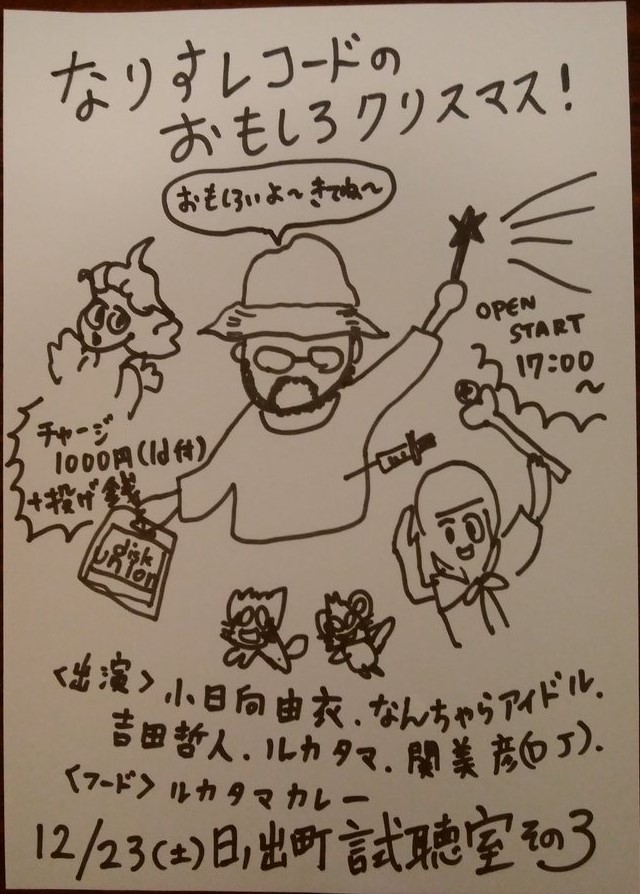 なりすレコードの
おもしろクリスマス!
おもしろいよ〜きてね〜
OPEN
START
17:00
〜
チャージ
1000円(1d付)
+投げ銭
disk
union
<出演> 小日向由衣.なんちゃらアイドル.
吉田哲人.ルカタマ.関美彦(DJ).
<フード> ルカタマカレー
12/23(土)日ノ出町 試聴室その3